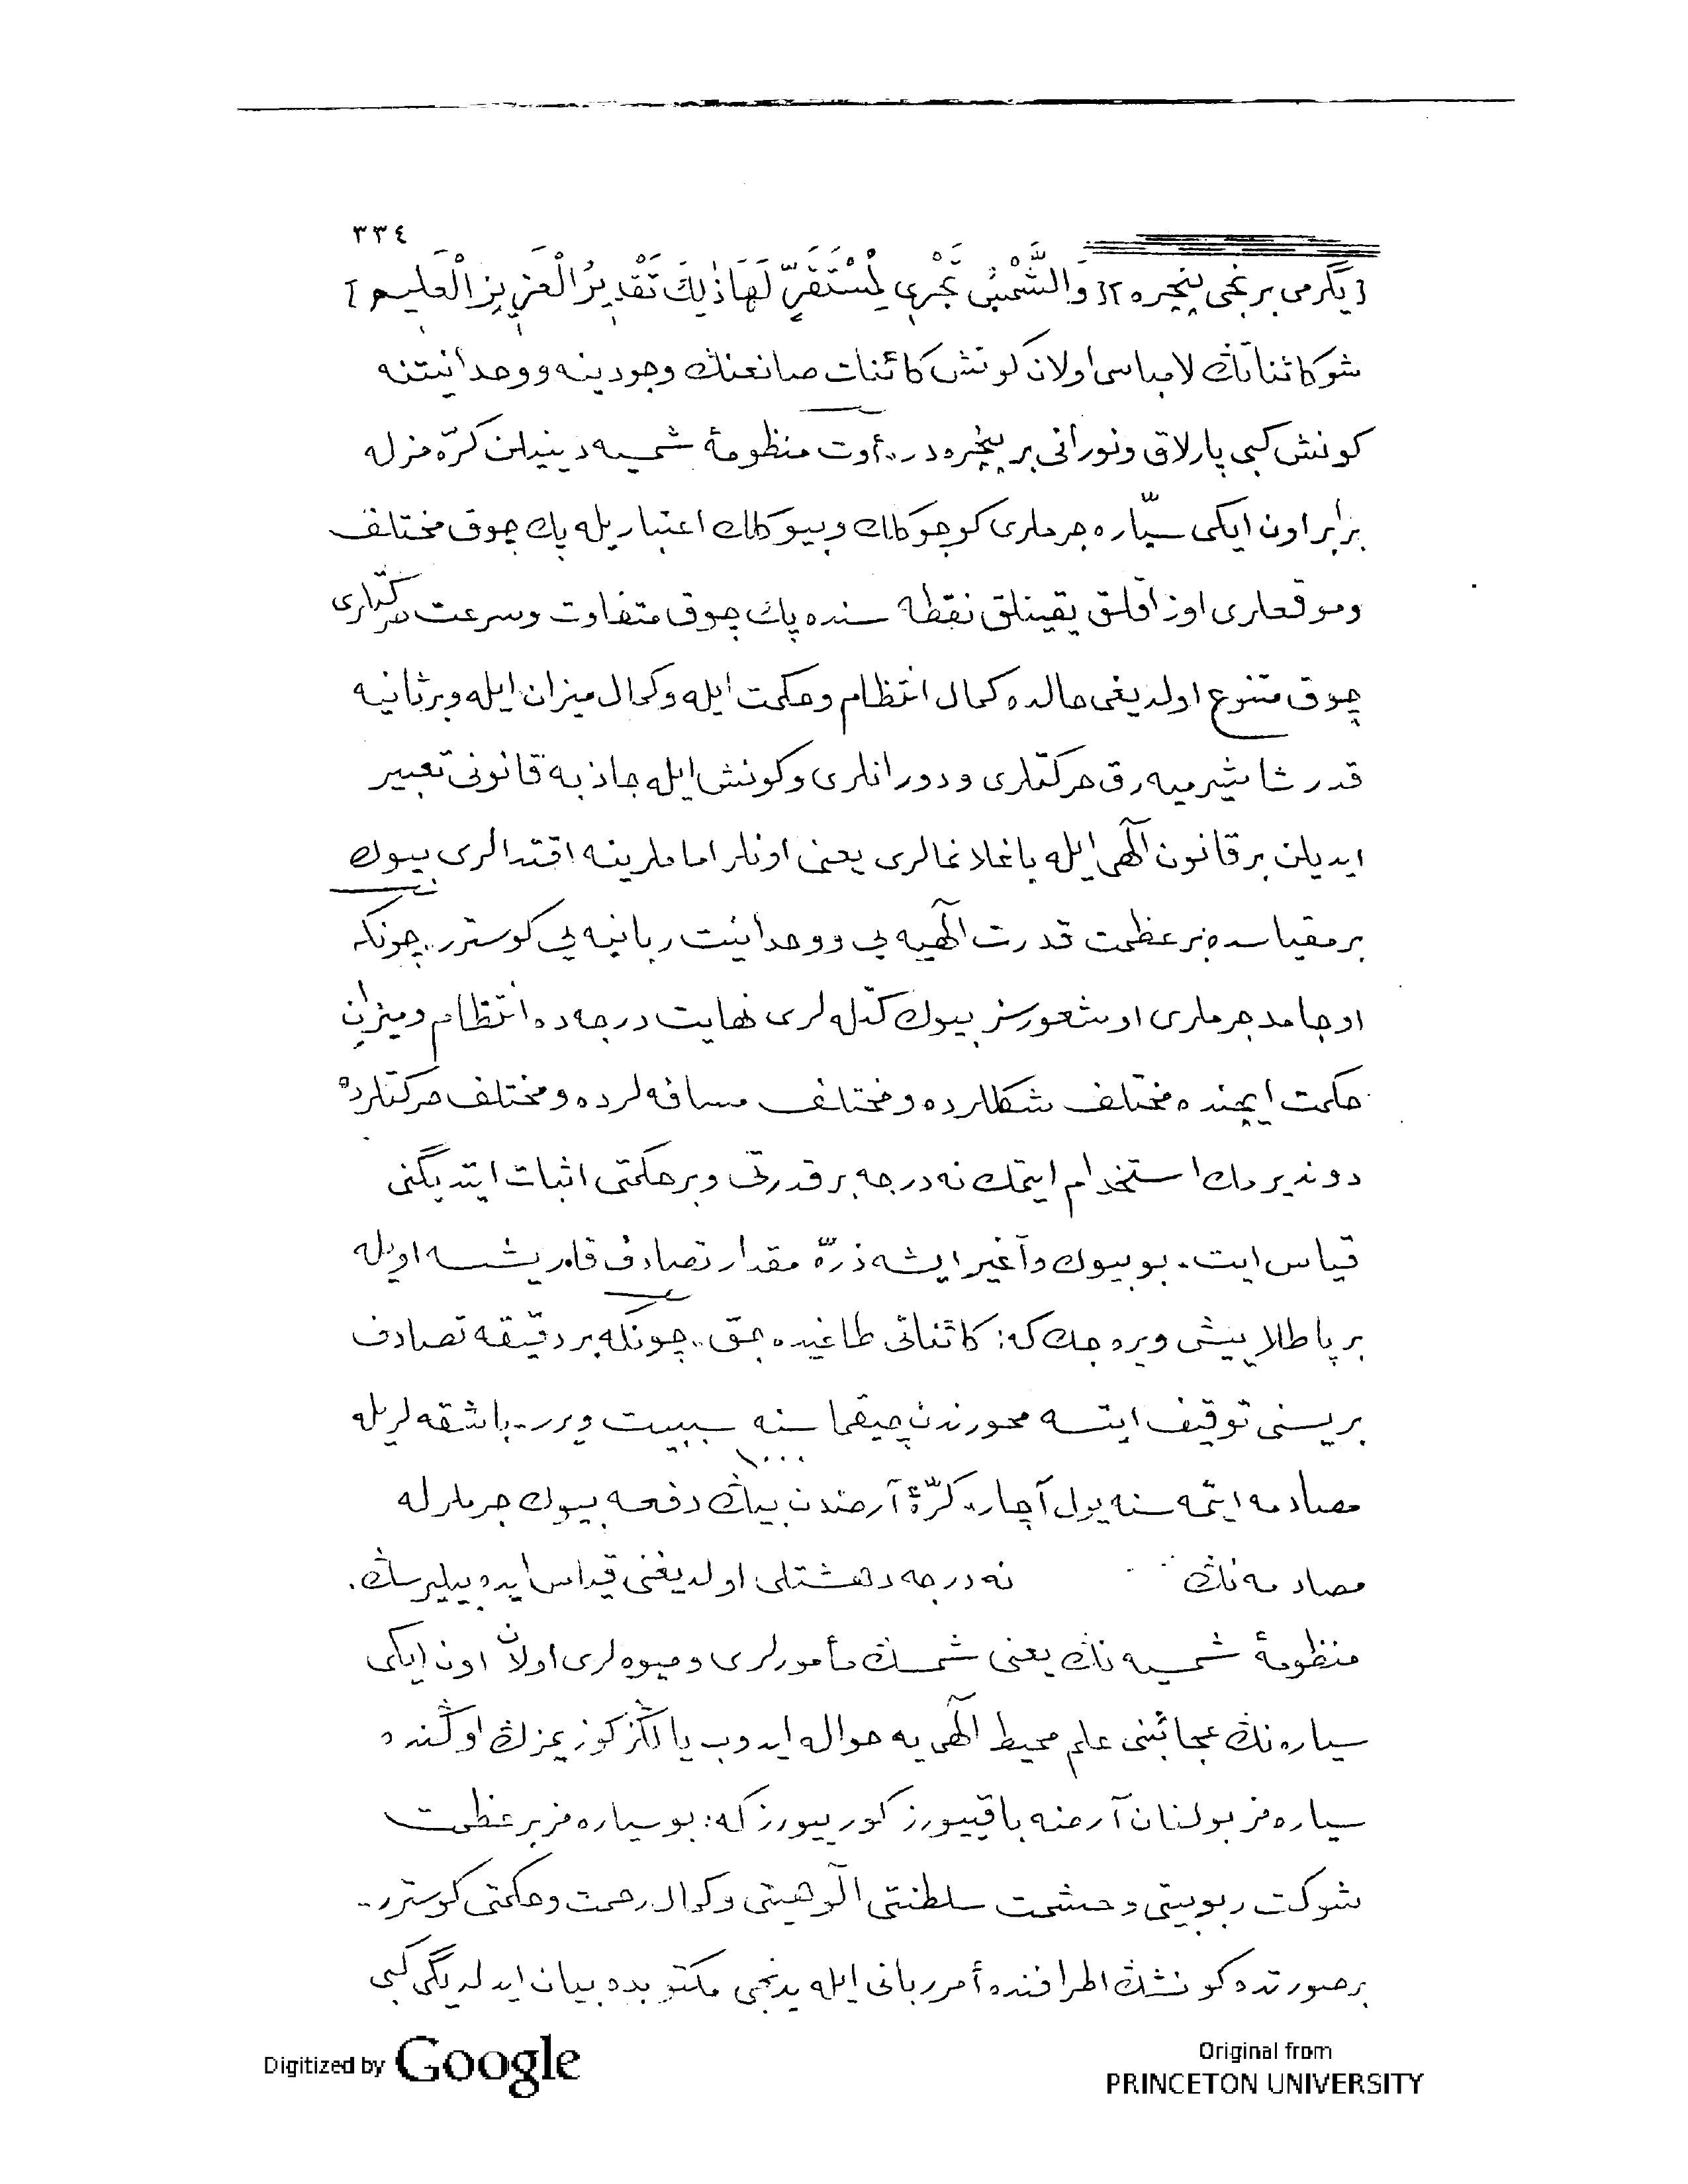 ٣٣٤
[ يگرمى برنجى پنجره ] [ وَالشَّمْسُ تَجْرِى لِمُسْتَقَرٍّ لَهَا ذٰلِكَ تَقْدِيرُ الْعَزِيزِ الْعَلِيمِ ]
شو كائناتڭ لامباسى اولان كونش كائنات صانعنڭ وجودينه و وحدانيتنه
كونش كبى پارلاق و نورانى بر پنجره در.. أوت منظومهٔ شمسيه دينيلن كرّه مزله
برابر اون ايكى سيّاره جرملرى كوچوكلك وبيوكلك اعتباريله پك چوق مختلف
وموقعلرى اوزاقلق يقينلق نقطه سنده پك چوق متفاوت وسرعت حركتلرى
چوق متنوع اولديغى حالده كمال انتظام وحكمت ايله وكمال ميزان ايله وبر ثانيه
قدر شاشيرميه رق حركتلرى و دورانلرى وكونش ايله جاذبه قانونى تعبير
ايديلن بر قانون الٓهى ايله باغلانمالرى يعنى اونلر اماملرينه اقتدالرى بيوك
بر مقياسده بر عظمت قدرت الٓهيه يى و وحدانيت ربانيه يى كوسترر.. چونكه
او جامد جرملرى او شعورسز بيوك كتله لرى نهايت درجه ده انتظام وميزان
حكمت ايچنده مختلف شكللرده ومختلف مسافه لرده ومختلف حركتلرده
دونديرمك استخدام ايتمك نه درجه بر قدرتى وبر حكمتى اثبات ايتديگنى
قياس ايت. بو بيوك وآغير ايشه ذرّه مقدار تصادف قاريشسه اويله
بر پاطلاييش ويره جك كه: كائناتى طاغيده جق.. چونكه بر دقيقه تصادف
بريسنى توقيف ايتسه محورندن چيقماسنه سببيت ويرر.. باشقه لريله
١٠٠٠
مصادمه ايتمه سنه يول آچار.. كرّهٔ آرضدن بيڭ دفعه بيوك جرملرله
مصادمه نڭ نه درجه دهشتلى اولديغنى قياس ايده بيليرسڭ.
منظومهٔ شمسيه نڭ يعنى شمسڭ مأمورلرى وميوه لرى اولان اون ايكى
سياره نڭ عجائبنى علم محيط الٓهى يه حواله ايدوب يالڭز كوزيمزڭ اوڭنده
سياره مز بولنان آرضه باقييورز كورييورز كه: بو سياره مز بر عظمت
شوكت ربوبيتى وحشمت سلطنتى الٓوهيتى وكمال رحمت وحكمتى كوسترر..
بر صورتده كونشڭ اطرافنده أمر ربانى ايله يدنجى مكتوبده بيان ايدلديگى كبى
Digitized by Google
Original from
PRINCETON UNIVERSITY